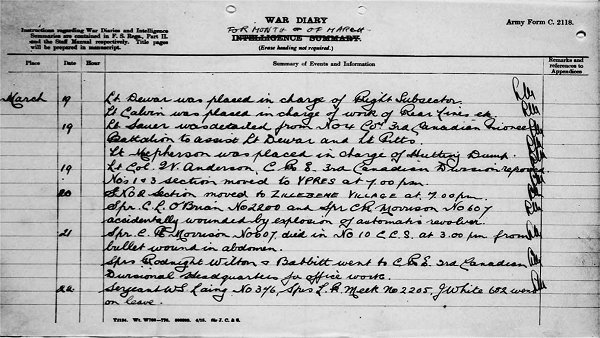 WAR DIARY
Army Form C. 2118.
FOR MONTH OF MARCH
INTELLIGENCE SUMMARY.
(Erase heading not required.)
Instructions regarding War Diaries and Intelligence
Summaries are contained in F. S. Regs., Part II.
and the Staff Manual respectively. Title pages
will be prepared in manuscript.
Place Date Hour Summary of Events and Information Remarks and references to Appendices
March 19 Lt Dewar was placed in charge of Right Subsector.
Lt Calvin was placed in charge of work of Rear Lines
19 Lt Sauer was detailed from No 4 Co. 3rd Canadian Pioneer
Battalion to assist Lt Dewar and Lt Pitts.
Lt McPherson was placed in charge of Hutting Dump.
19 Lt Col. Anderson, C.R.E. 3rd Canadian Division
Nos 1 & 3 section moved to YPRES at 7.00 pm.
20 Section moved to ZILLEBEKE VILLAGE at 7.00 pm.
Spr. C. L. O'Brian No 2200 and Spr C. R. Morrison No 607
accidentally wounded by explosion of automatic revolver.
21 Spr. C. R. Morrison No 607, died in No 10 C.C.S. at 3.00 pm from
bullet wound in abdomen.
Sprs Rodnight Wilton & Babbitt went to C.R.E. 3rd Canadian
Divisional Headquarters for office work.
22 Sergeant W.S. Laing No 376, Sprs L. R. Meek No 2205, J White 602 went
on leave.